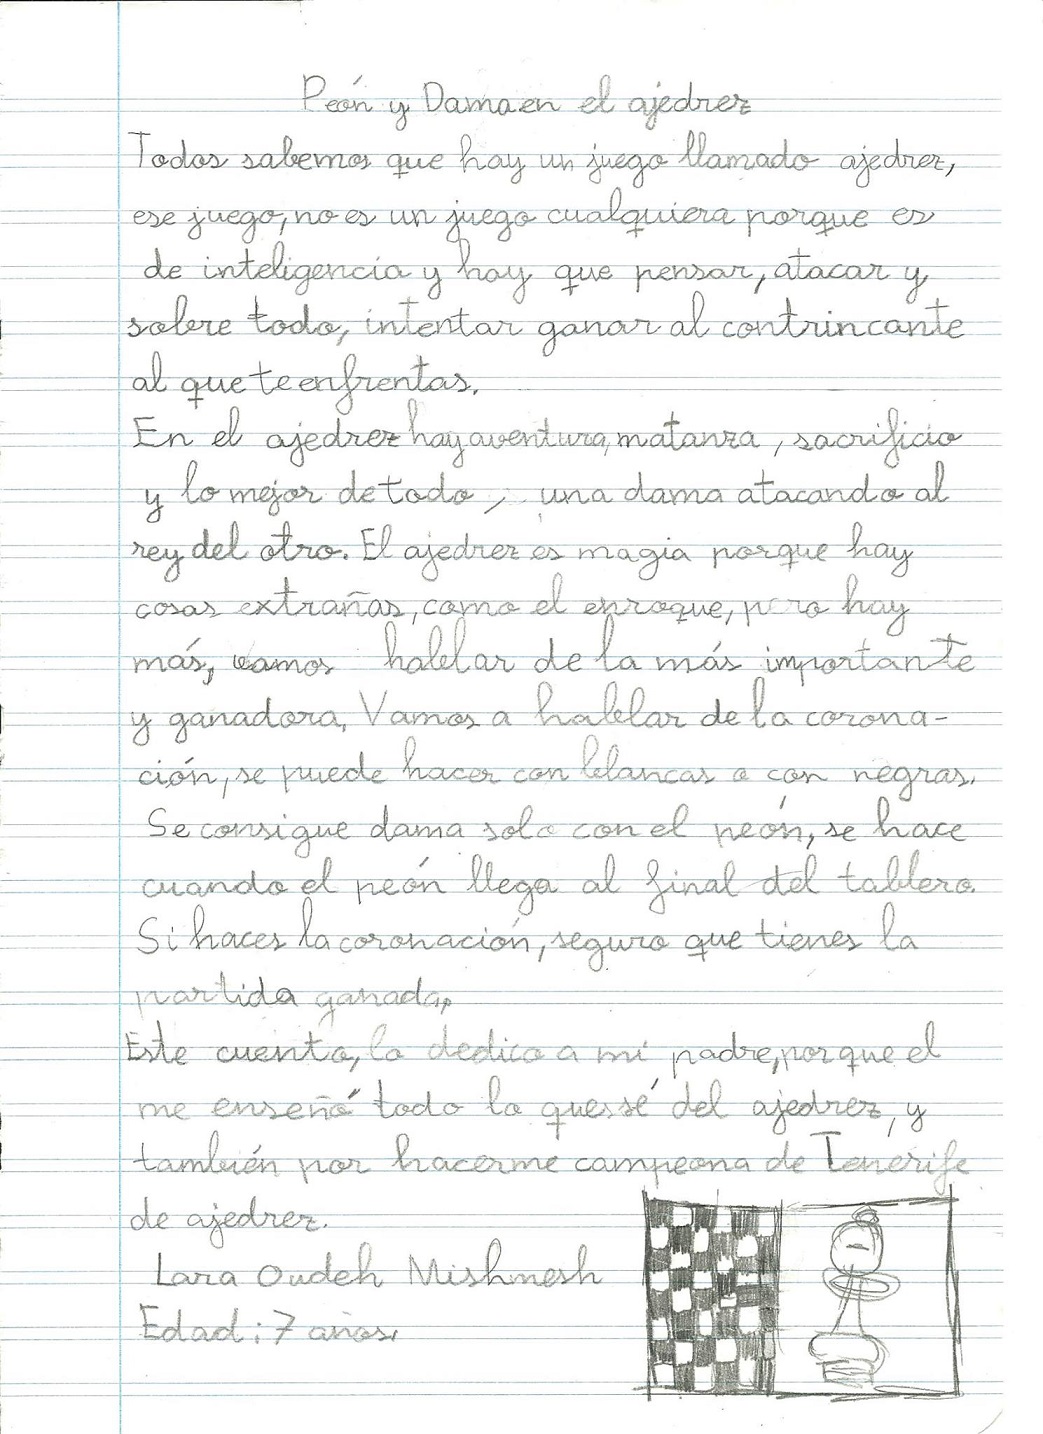 Peón y Dama en el ajedrez
Todos sabemos que hay un juego llamado ajedrez,
ese juego, no es un juego cualquiera porque es
de inteligencia y hay que pensar, atacar y
sobre todo, intentar ganar al contrincante
al que te enfrentas.
En el ajedrez hay aventura, matanza, sacrificio
y lo mejor de todo, una dama atacando al
rey del otro. El ajedrez es magia porque hay
cosas extrañas, como el enroque, pero hay
más, vamos hablar de la más importante
y ganadora, Vamos a hablar de la corona-
ción, se puede hacer con blancas o con negras.
Se consigue dama solo con el peón, se hace
cuando el peón llega al final del tablero.
Si haces la coronación, seguro que tienes la
partida ganada,
Este cuento, lo dedico a mi padre, porque el
me enseñó todo lo que sé del ajedrez, y
también por hacerme campeona de Tenerife
de ajedrez.
Lara Oudeh Mishmesh
Edad: 7 años.